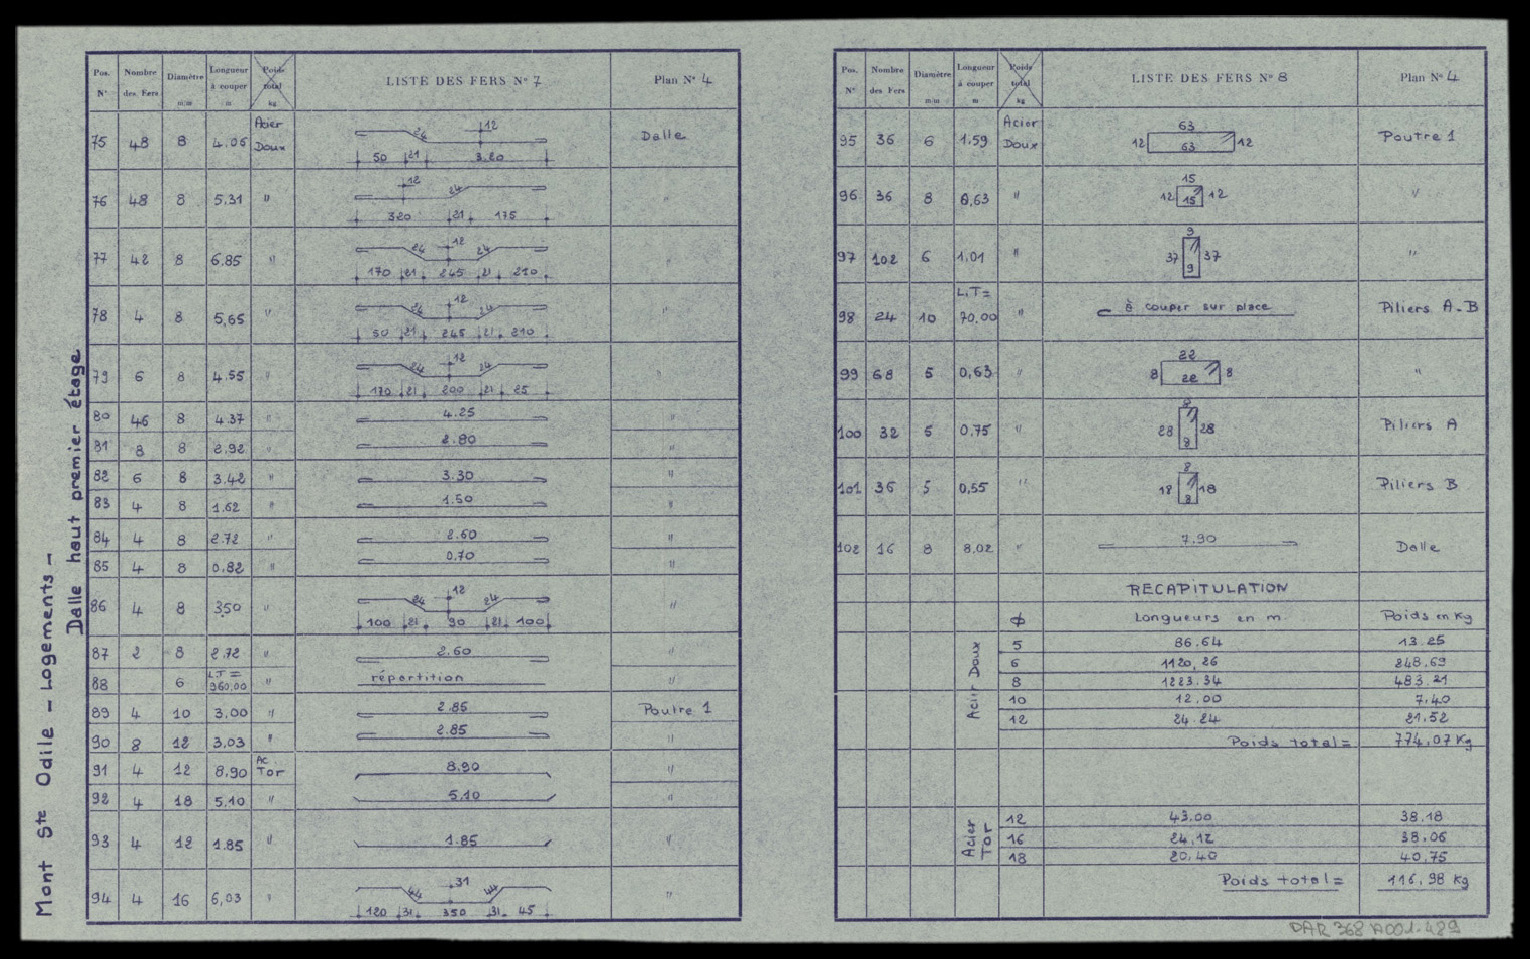 Mont Ste Odile - Logements -
Dalle haut premier étage
Pos. N° Nombre des Fers Diamètre m/m Longueur à couper m Poids total kg LISTE DES FERS N° 7 Plan N° 4
75 48 8 4.05 Acier Doux 24 12 50 21 3.20 Dalle
76 48 8 5.31 " 12 24 320 21 175 "
77 42 8 6.85 " 24 12 24 170 21 245 21 210 "
78 4 8 5,65 " 24 12 24 50 21 245 21 210 "
79 6 8 4.55 " 24 12 24 170 21 200 21 25 "
80 46 8 4.37 " 4.25 "
81 8 8 2.92 " 2.80 "
82 6 8 3.42 " 3.30 "
83 4 8 1.62 " 1.50 "
84 4 8 2.72 " 2.60 "
85 4 8 0.82 " 0.70 "
86 4 8 3.50 " 24 12 24 100 21 90 21 100 "
87 2 8 2.72 " 2.60 "
88 6 L.T = 960.00 " répartition "
89 4 10 3,00 " 2.85 Poutre 1
90 8 12 3,03 " 2.85 "
91 4 12 8,90 Ac. Tor 8.90 "
92 4 18 5,10 " 5.10 "
93 4 12 1.85 " 1.85 "
94 4 16 6,03 " 44 31 44 120 31 350 31 45 "
Pos. N° Nombre des Fers Diamètre m/m Longueur à couper m Poids total kg LISTE DES FERS N° 8 Plan N° 4
95 36 6 1.59 Acier Doux 63 12 63 12 Poutre 1
96 36 8 0,63 " 15 12 15 12 "
97 102 6 1,01 " 9 37 9 37 "
98 24 10 L.T = 70.00 " à couper sur place Piliers A-B
99 68 5 0,63 " 22 8 22 8 "
100 32 5 0,75 " 8 28 8 28 Piliers A
101 36 5 0,55 " 8 18 8 18 Piliers B
102 16 8 8.02 " 7.90 Dalle
RECAPITULATION
ϕ Longueurs en m. Poids en Kg
Acier Doux
5 86.64 13.25
6 1120,26 248,69
8 1223.34 483.21
10 12.00 7,40
12 24.24 21.52
Poids total = 774,07 Kg
Acier Tor
12 43.00 38,18
16 24,12 38,06
18 20,40 40,75
Poids total = 116,98 Kg
DAR 368 A001.489